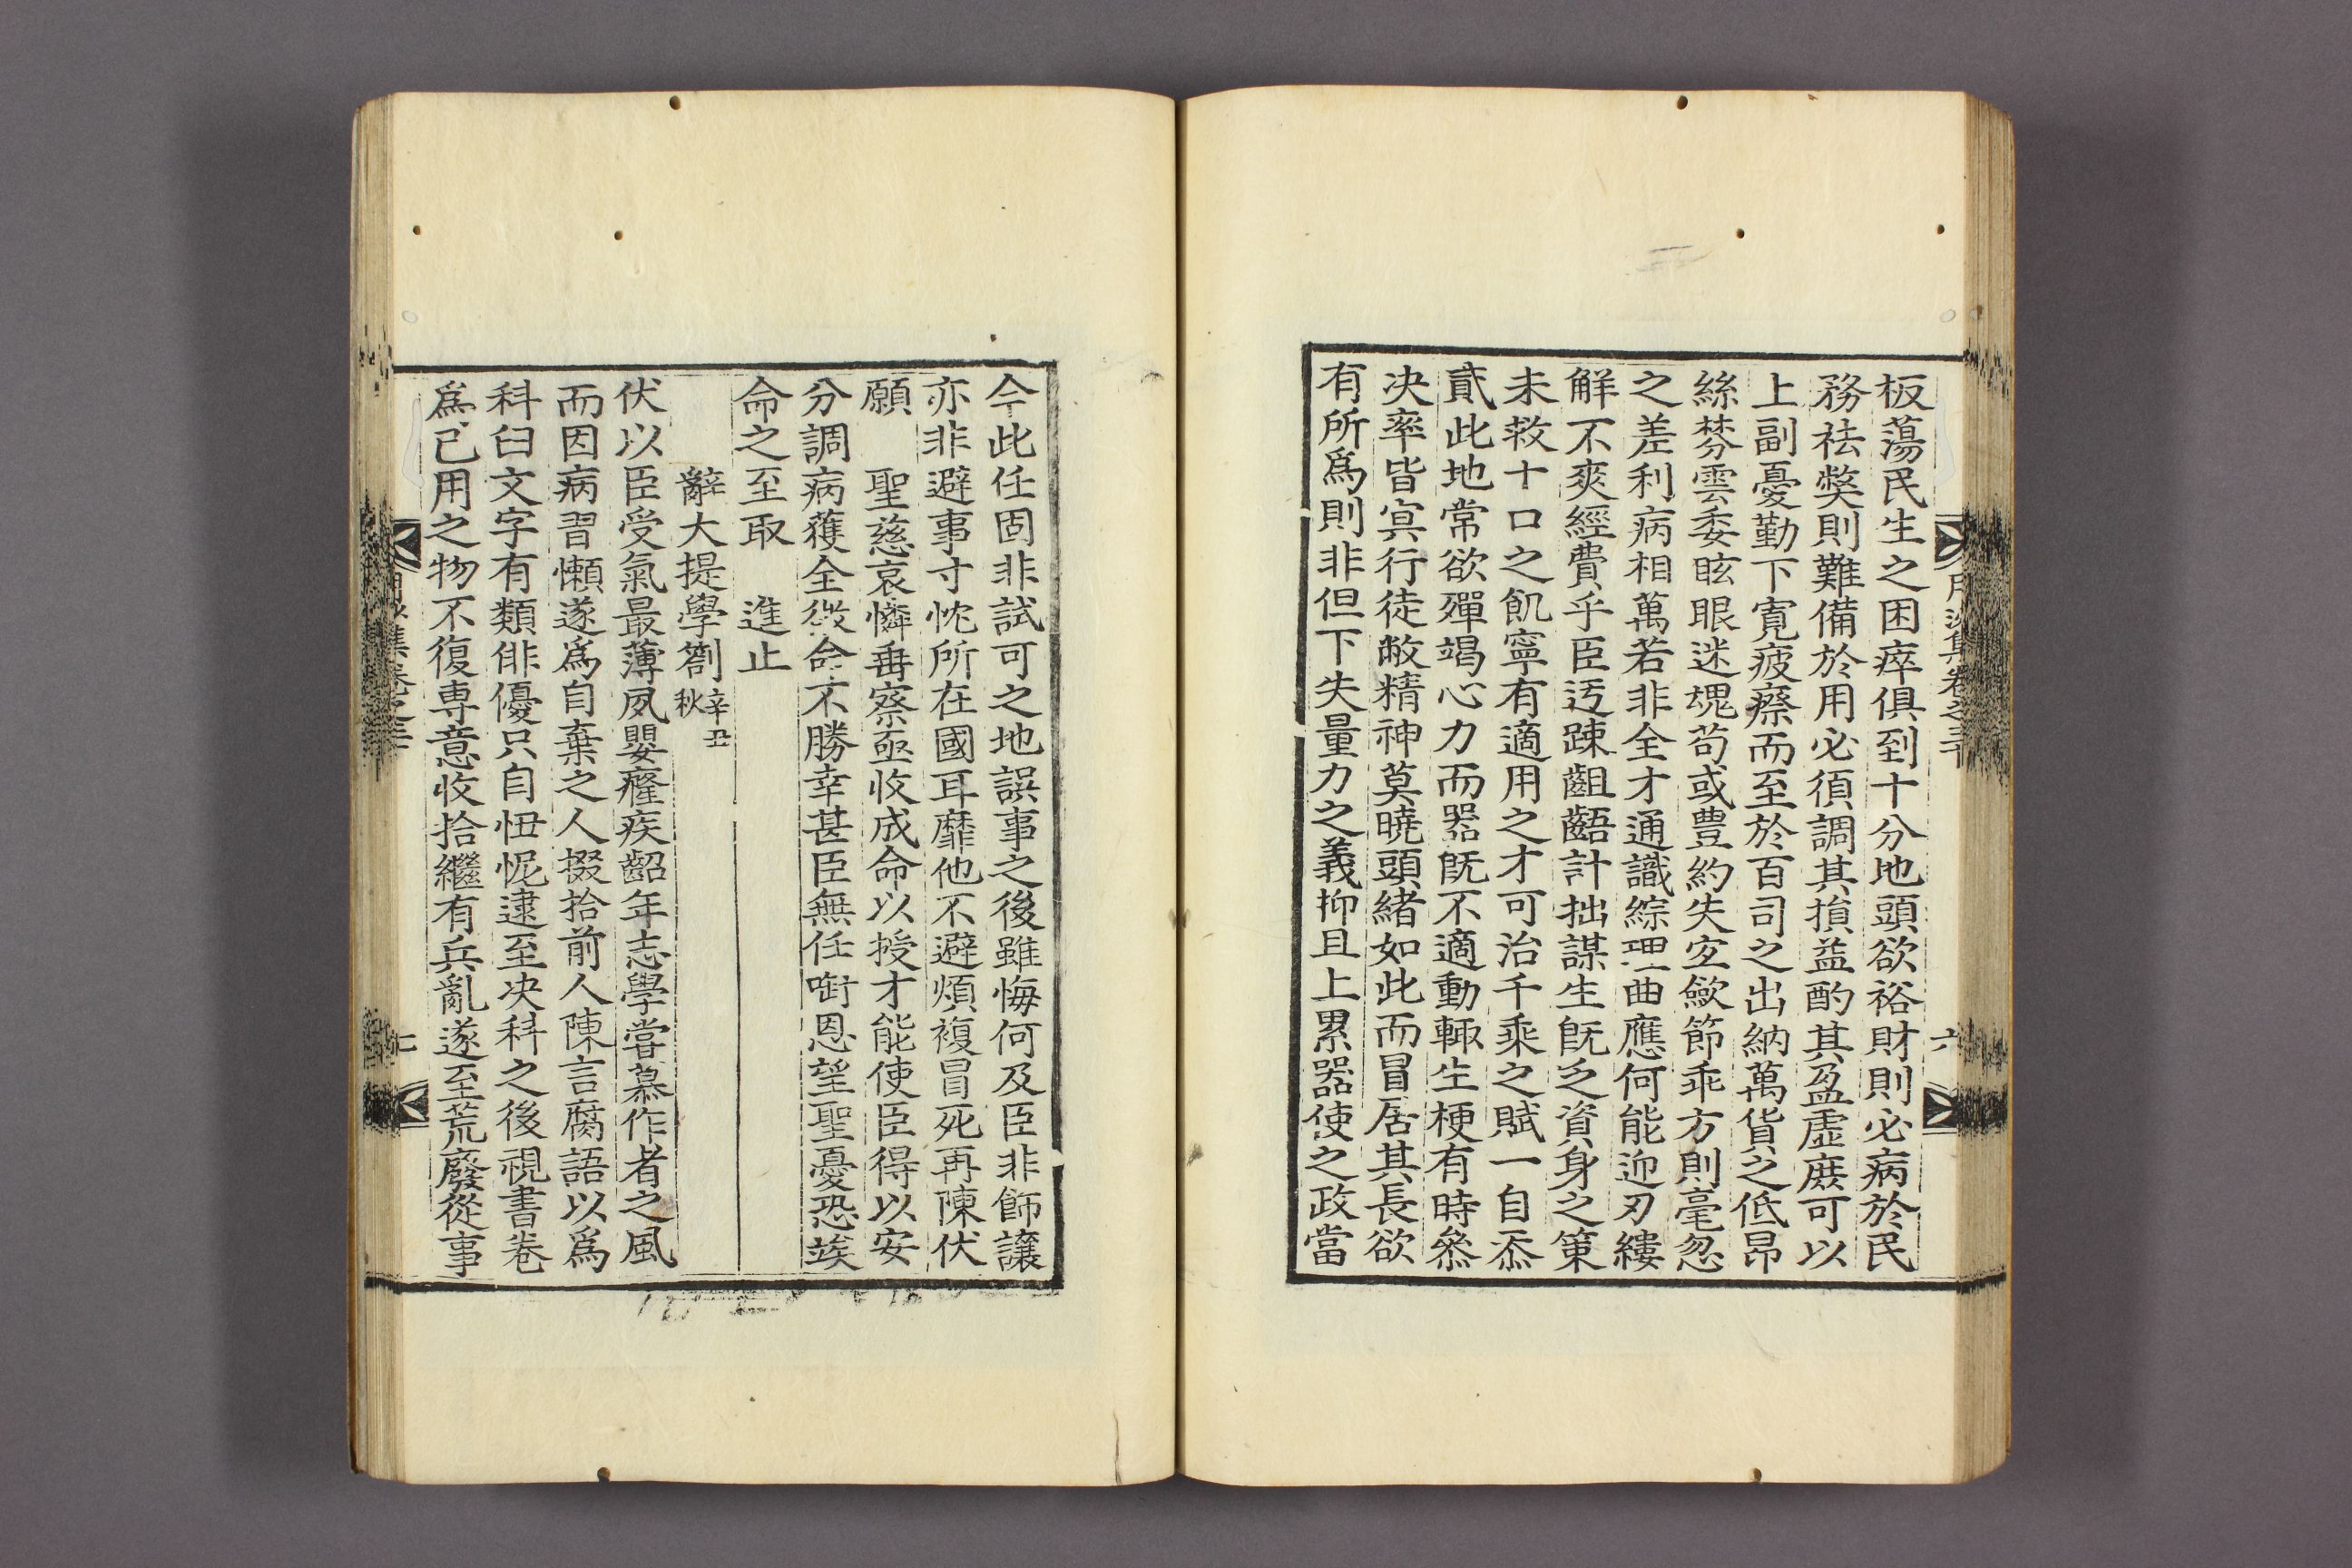 板蕩民生之困瘁俱到十分地頭欲裕財則必病於民
務祛獘則難備於用必須調其損益酌其盈虛庶可以
上副憂勤下寬疲瘵而至於百司之出納萬貨之低昻
絲棼雲委眩眼迷魂苟或豊約失宜歛節乖方則毫忽
之差利病相萬若非全才通識綜理曲應何能迎刃縷
解不爽經費乎臣迃踈齟齬計拙謀生旣乏資身之策
未救十口之飢寧有適用之才可治千乘之賦一自忝
貳此地常欲殫竭心力而器旣不適動輒生梗有時叅
决率皆㝠行徒敝精神莫曉頭緖如此而冒居其長欲
有所爲則非但下失量力之義抑且上累器使之政當
今此任固非試可之地誤事之後雖悔何及臣非餙讓
亦非避事寸忱所在國耳靡他不避煩複冒死再陳伏
願 聖慈哀憐垂察亟收成命以授才能使臣得以安
分調病獲全微命不勝幸甚臣無任啣恩望聖憂恐竢
命之至取 進止
辭大提學劄 辛丑秋
伏以臣受氣最薄夙嬰癃疾齠年志學嘗慕作者之風
而因病習懶遂爲自棄之人掇拾前人陳言腐語以爲
科臼文字有類俳優只自忸怩逮至决科之後視書卷
爲已用之物不復専意收拾繼有兵亂遂至荒廢從事
集卷之三
六
七